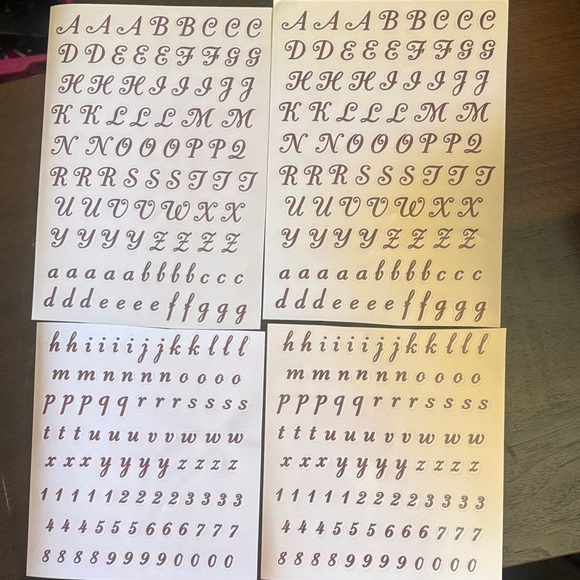 AAABBCCC
DDEEEFFGG
HHHIIIJJ
KKLLLMM
NNOOOPPQ
RRRSSSTTT
UUVVWXX
YYYYZZZZ
aaaaabbbbccc
dddeeeeffggg
AAABBCCC
DDEEEFFGG
HHHIIIJJ
KKLLLMM
NNOOOPPQ
RRRSSSTTT
UUVVWXX
YYYYZZZZ
aaaaabbbbccc
dddeeeeffggg
hhiiiijjkklll
mmnnnnoooo
pppqqrrrssss
tttuuuvvwww
xxxyyyyzzzz
1111122223333
444555666777
888899990000
hhiiiijjkklll
mmnnnnoooo
pppqqrrrssss
tttuuuvvwww
xxxyyyyzzzz
1111122223333
444555666777
888899990000